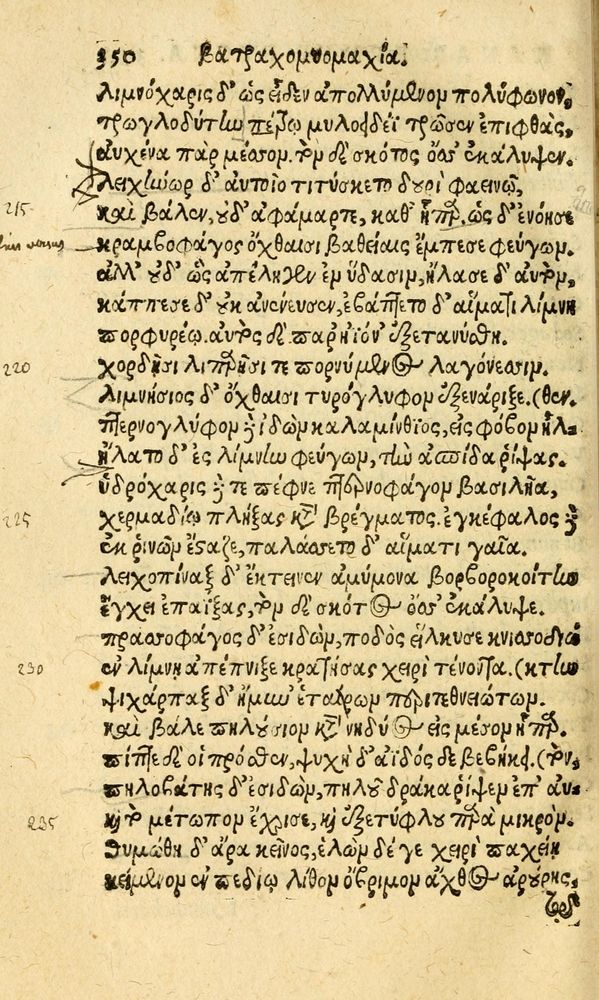 350 Βατραχομυομαχία.
λιμνόχαρις δ' ὡς εἶδεν ἀπολλύμενον πολύφωνον,
τρωγλοδύτην πέζω μυλοειδέϊ τρῶσεν ἐπιφθὰς,
αὐχένα παρ μέσσον. τὸν δὲ σκότος ὄσσ' ἐκάλυψεν.
Λειχήνωρ δ' αὐτοῖο τιτύσκετο δουρὶ φαεινῷ,
215 καὶ βάλεν, οὐδ' ἀφάμαρτε, καθ' ἧπαρ. ὡς δ' ἐνόησε
κραμβοφάγος ὄχθαισι βαθείαις ἔμπεσε φεύγων.
ἀλλ' οὐδ' ὣς ἀπέληγεν ἐν ὕδασιν, ἤλασε δ' αὐτὸν,
κάππεσε δ' οὐκ ἀνένευσεν, ἐβάπτετο δ' αἵματι λίμνη
πορφυρέῳ. αὐτὸς δὲ παρηϊόν' ἐξετανύσθη.
220 χορδῇσι λιπαρῇσί τε πορνύμενος λαγόνεσσιν.
λιμνήσιος δ' ὄχθαισι τυρόγλυφον ἐξενάριξε. (θεν.
πτερνογλύφον δὲ ἰδὼν καλαμίνθιος, εἰς φόβον ἦλ-
ἥλατο δ' ἐς λίμνην φεύγων, τὴν ἀσπίδα ῥίψας.
ὑδρόχαρις δέ τε πέφνε πτερνοφάγον βασιλῆα,
225 χερμαδίῳ πλήξας κατὰ βρέγματος. ἐγκέφαλος δὲ
ἐκ ῥινῶν ἔσταζε, παλάσσετο δ' αἵματι γαῖα.
λειχοπίναξ δ' ἔκτεινεν ἀμύμονα βορβοροκοίτην
ἔγχει ἐπαΐξας, τὸν δὲ σκότος ὄσσ' ἐκάλυψε.
πρασσοφάγος δ' ἐσιδὼν, ποδὸς εἵλκυσε κνισσοδιώ
230 ἐν λίμνῃ ἀπέπνιξε κρατήσας χειρὶ τένοντα. (κτην
ψιχάρπαξ δ' ἤμυν' ἑτάρων περὶ τεθνειώτων.
καὶ βάλε πηλούσιον κατὰ νηδύος εἰς μέσον ἧπαρ.
πίπτε δέ οἱ πρόσθεν, ψυχὴ δ' ἄϊδός δε βεβήκει. (τὸν,
πηλοβάτης δ' ἐσιδὼν, πηλοῦ δράκα ῥίψεν ἐπ' αὐ-
235 καὶ τὸ μέτωπον ἔχρισε, καὶ ἐξετύφλου παρὰ μικρόν.
θυμώθη δ' ἄρα κεῖνος, ἑλὼν δέ γε χειρὶ παχείῃ
κείμενον ἐν πεδίῳ λίθον ὄβριμον ἄχθος ἀρούρης,